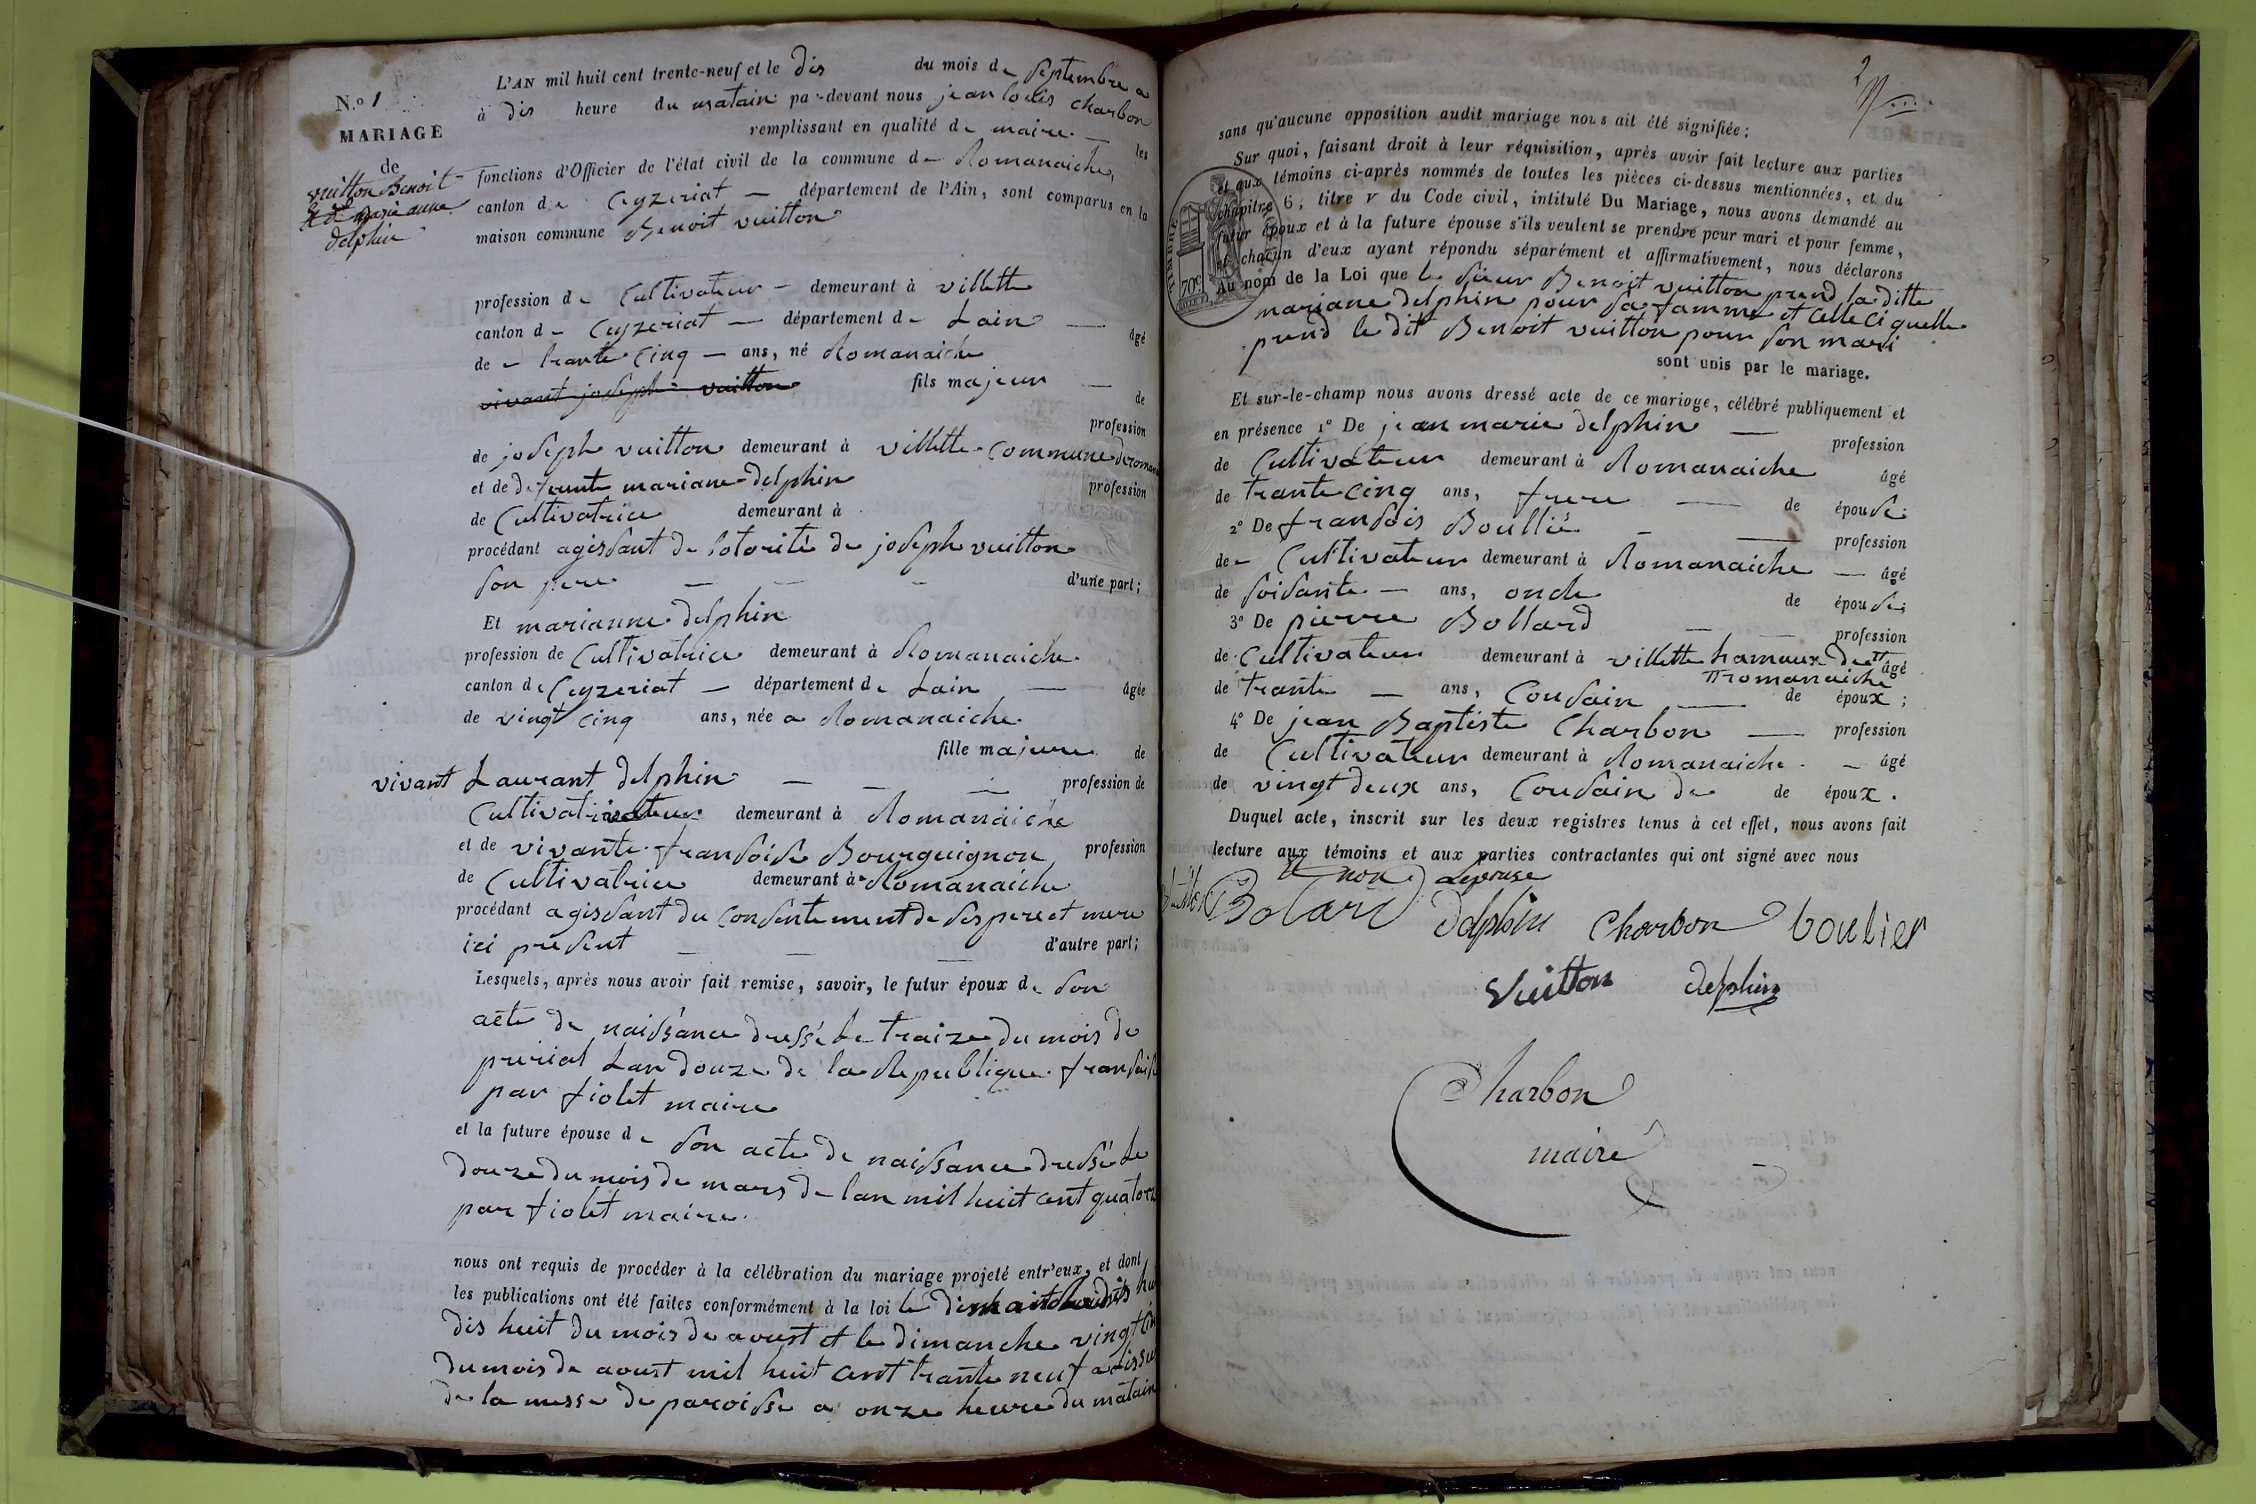 N.º 1
MARIAGE
de
vuitton Benoit
et marie anne
delphin
L'AN mil huit cent trente-neuf et le dis du mois de septembre a
à dis heure du matain par-devant nous jean louis charbon
remplissant en qualité de maire les
fonctions d'Officier de l'état civil de la commune de Romanaiche
canton de Ceyzeriat département de l'Ain, sont comparus en la
maison commune Benoit vuitton
profession de Cultivateur demeurant à villette
canton de Ceyzeriat département de Lain âgé
de trante cinq ans, né Romanaiche
vivant joseph vuitton fils majeur de
profession
de joseph vuitton demeurant à villette commune de roman
et de defeunte mariane delphin profession
de Cultivatrice demeurant à
procédant agissant de lotorité de joseph vuitton
son pere d'une part;
Et marianne delphin
profession de Cultivatrice demeurant à Romanaiche
canton de Ceyzeriat département de Lain âgée
de vingt cinq ans, née a Romanaiche
fille majeure de
vivant Laurant delphin profession de
demeurant à Romanaiche
et de vivante fransoise Bourguignon profession
de Cultivatrice demeurant à Romanaiche
procédant agissant du consentement de ses pere et mere
ici present d'autre part;
Lesquels, après nous avoir fait remise, savoir, le futur époux de son
acte de naissance dressé le traize du mois de
prerial Lan douze de la Republique fransaise
par fiolet maire
et la future épouse de son acte de naissance dressé le
douze du mois de mars de lan mil huit cent quatorz
par fiolet maire
nous ont requis de procéder à la célébration du mariage projeté entr'eux, et dont
les publications ont été faites conformément à la loi le
dis huit du mois de aoust et le dimanche vingt cin
du mois de aoust mil huit cent trante neuf a lissu
de la messe de paroisse a onze heure du matain
2
sans qu'aucune opposition audit mariage nous ait été signifiée;
Sur quoi, faisant droit à leur réquisition, après avoir fait lecture aux parties
et aux témoins ci-après nommés de toutes les pièces ci-dessus mentionnées, et du
chapitre 6, titre v du Code civil, intitulé Du Mariage, nous avons demandé au
futur époux et à la future épouse s'ils veulent se prendre pour mari et pour femme,
et chacun d'eux ayant répondu séparément et affirmativement, nous déclarons
Au nom de la Loi que le sieur Benoit vuitton prend la ditte
mariane delphin pour sa famme et celle ci quelle
prend le dit Benoit vuitton pour son mari
sont unis par le mariage.
TIMBRE
70c
Et sur-le-champ nous avons dressé acte de ce mariage, célébré publiquement et
en présence 1º De jean marie delphin profession
de Cultivateur demeurant à Romanaiche âgé
de trante cinq ans, frere de épouse
2º De fransois Boullié profession
de Cultivateur demeurant à Romanaiche âgé
de soisante ans, oncle de épouse;
3º De pierre Bollard profession
de Cultivateur demeurant à villette hamaux de âgé
romanaiche
de trante ans, Cousain de époux;
4º De jean Baptiste Charbon profession
de Cultivateur demeurant à Romanaiche âgé
de vingt deux ans, Cousain de de époux.
Duquel acte, inscrit sur les deux registres tenus à cet effet, nous avons fait
lecture aux témoins et aux parties contractantes qui ont signé avec nous
et non Lepouse
Bolard Delphin Charbon boulier
Vuitton delphin
Charbon
maire